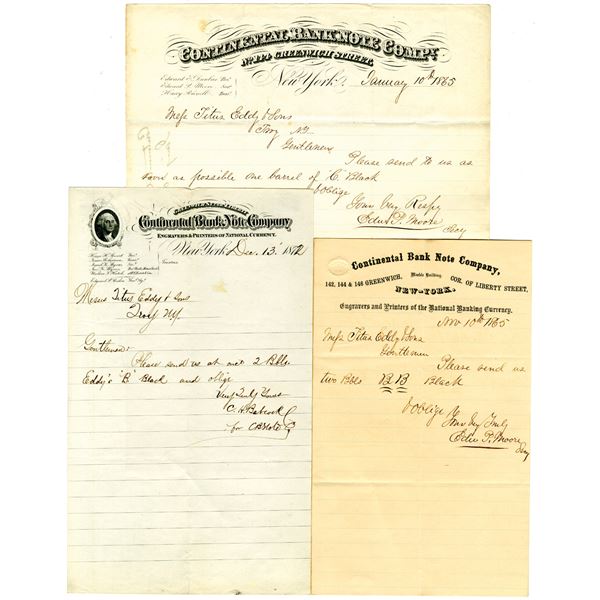 CONTINENTAL BANK NOTE COMPY.
No. 144 GREENWICH STREET.
New York, January 10th 1865
Mess Titus Eddy & Sons
Troy N.Y.
Gentlemen
Please send to us as
soon as possible one barrel of C. Black
& Oblige
Yours Very Respy
Edwd P. Moore
Secy
GREENWICH STREET
Continental Bank Note Company
ENGRAVERS & PRINTERS OF NATIONAL CURRENCY.
New York Dec. 13. 1872
Messrs Titus Eddy & Sons
Troy NY
Gentlemen:
Please send us at once 2 Bbls
Eddy's "B" Black and oblige
Very Truly Yours
C. H. Babcock
for C B Note Co
Continental Bank Note Company,
142, 144 & 146 GREENWICH, Marble Building COR. OF LIBERTY STREET,
NEW-YORK.
Engravers and Printers of the National Banking Currency.
Nov 10th 1865
Mess Titus Eddy & Sons
Gentlemen
Please send us
two Bbls BB Black
& Oblige
Yours Truly
Edwd P. Moore
Secy